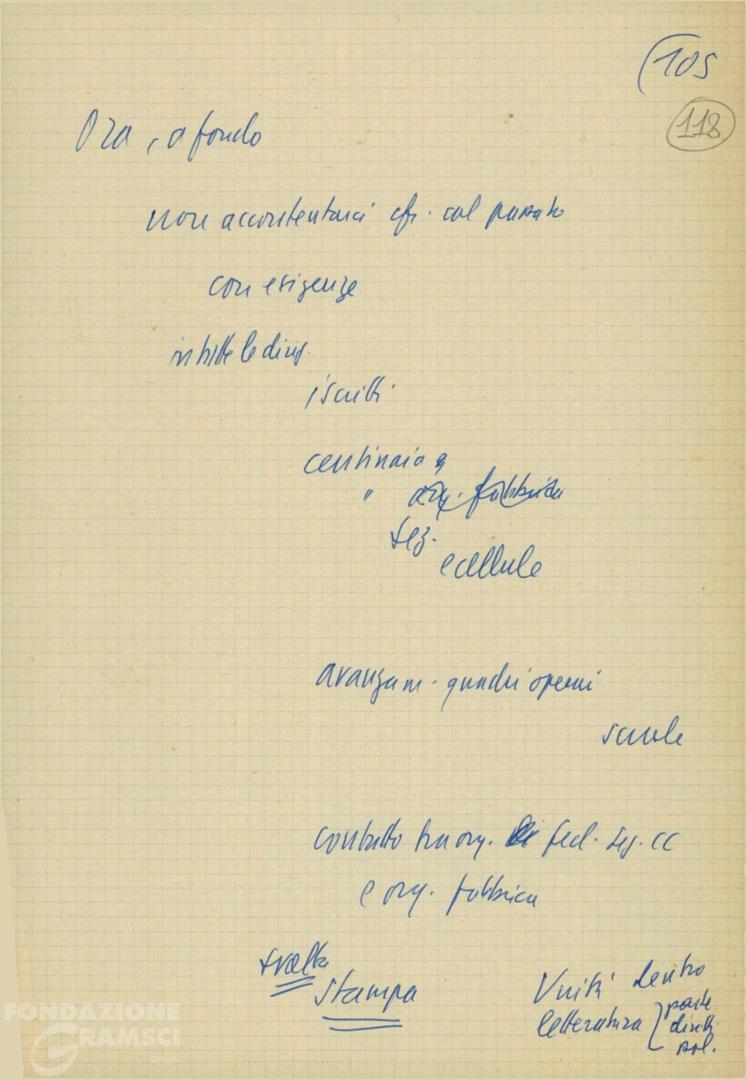 (105
118
Ora, a fondo
non accontentarci cfr. col passato
con esigenze
in tutte le direz.
iscritti
centinaia
" org. fabbrica
sez.
e cellule
avanzam. quadri operai
scuole
contatto tra org. fed. seg. CC
e org. fabbrica
svolta
stampa
Unità dentro
letteratura
parte
diritti
pol.
FONDAZIONE
GRAMSCI